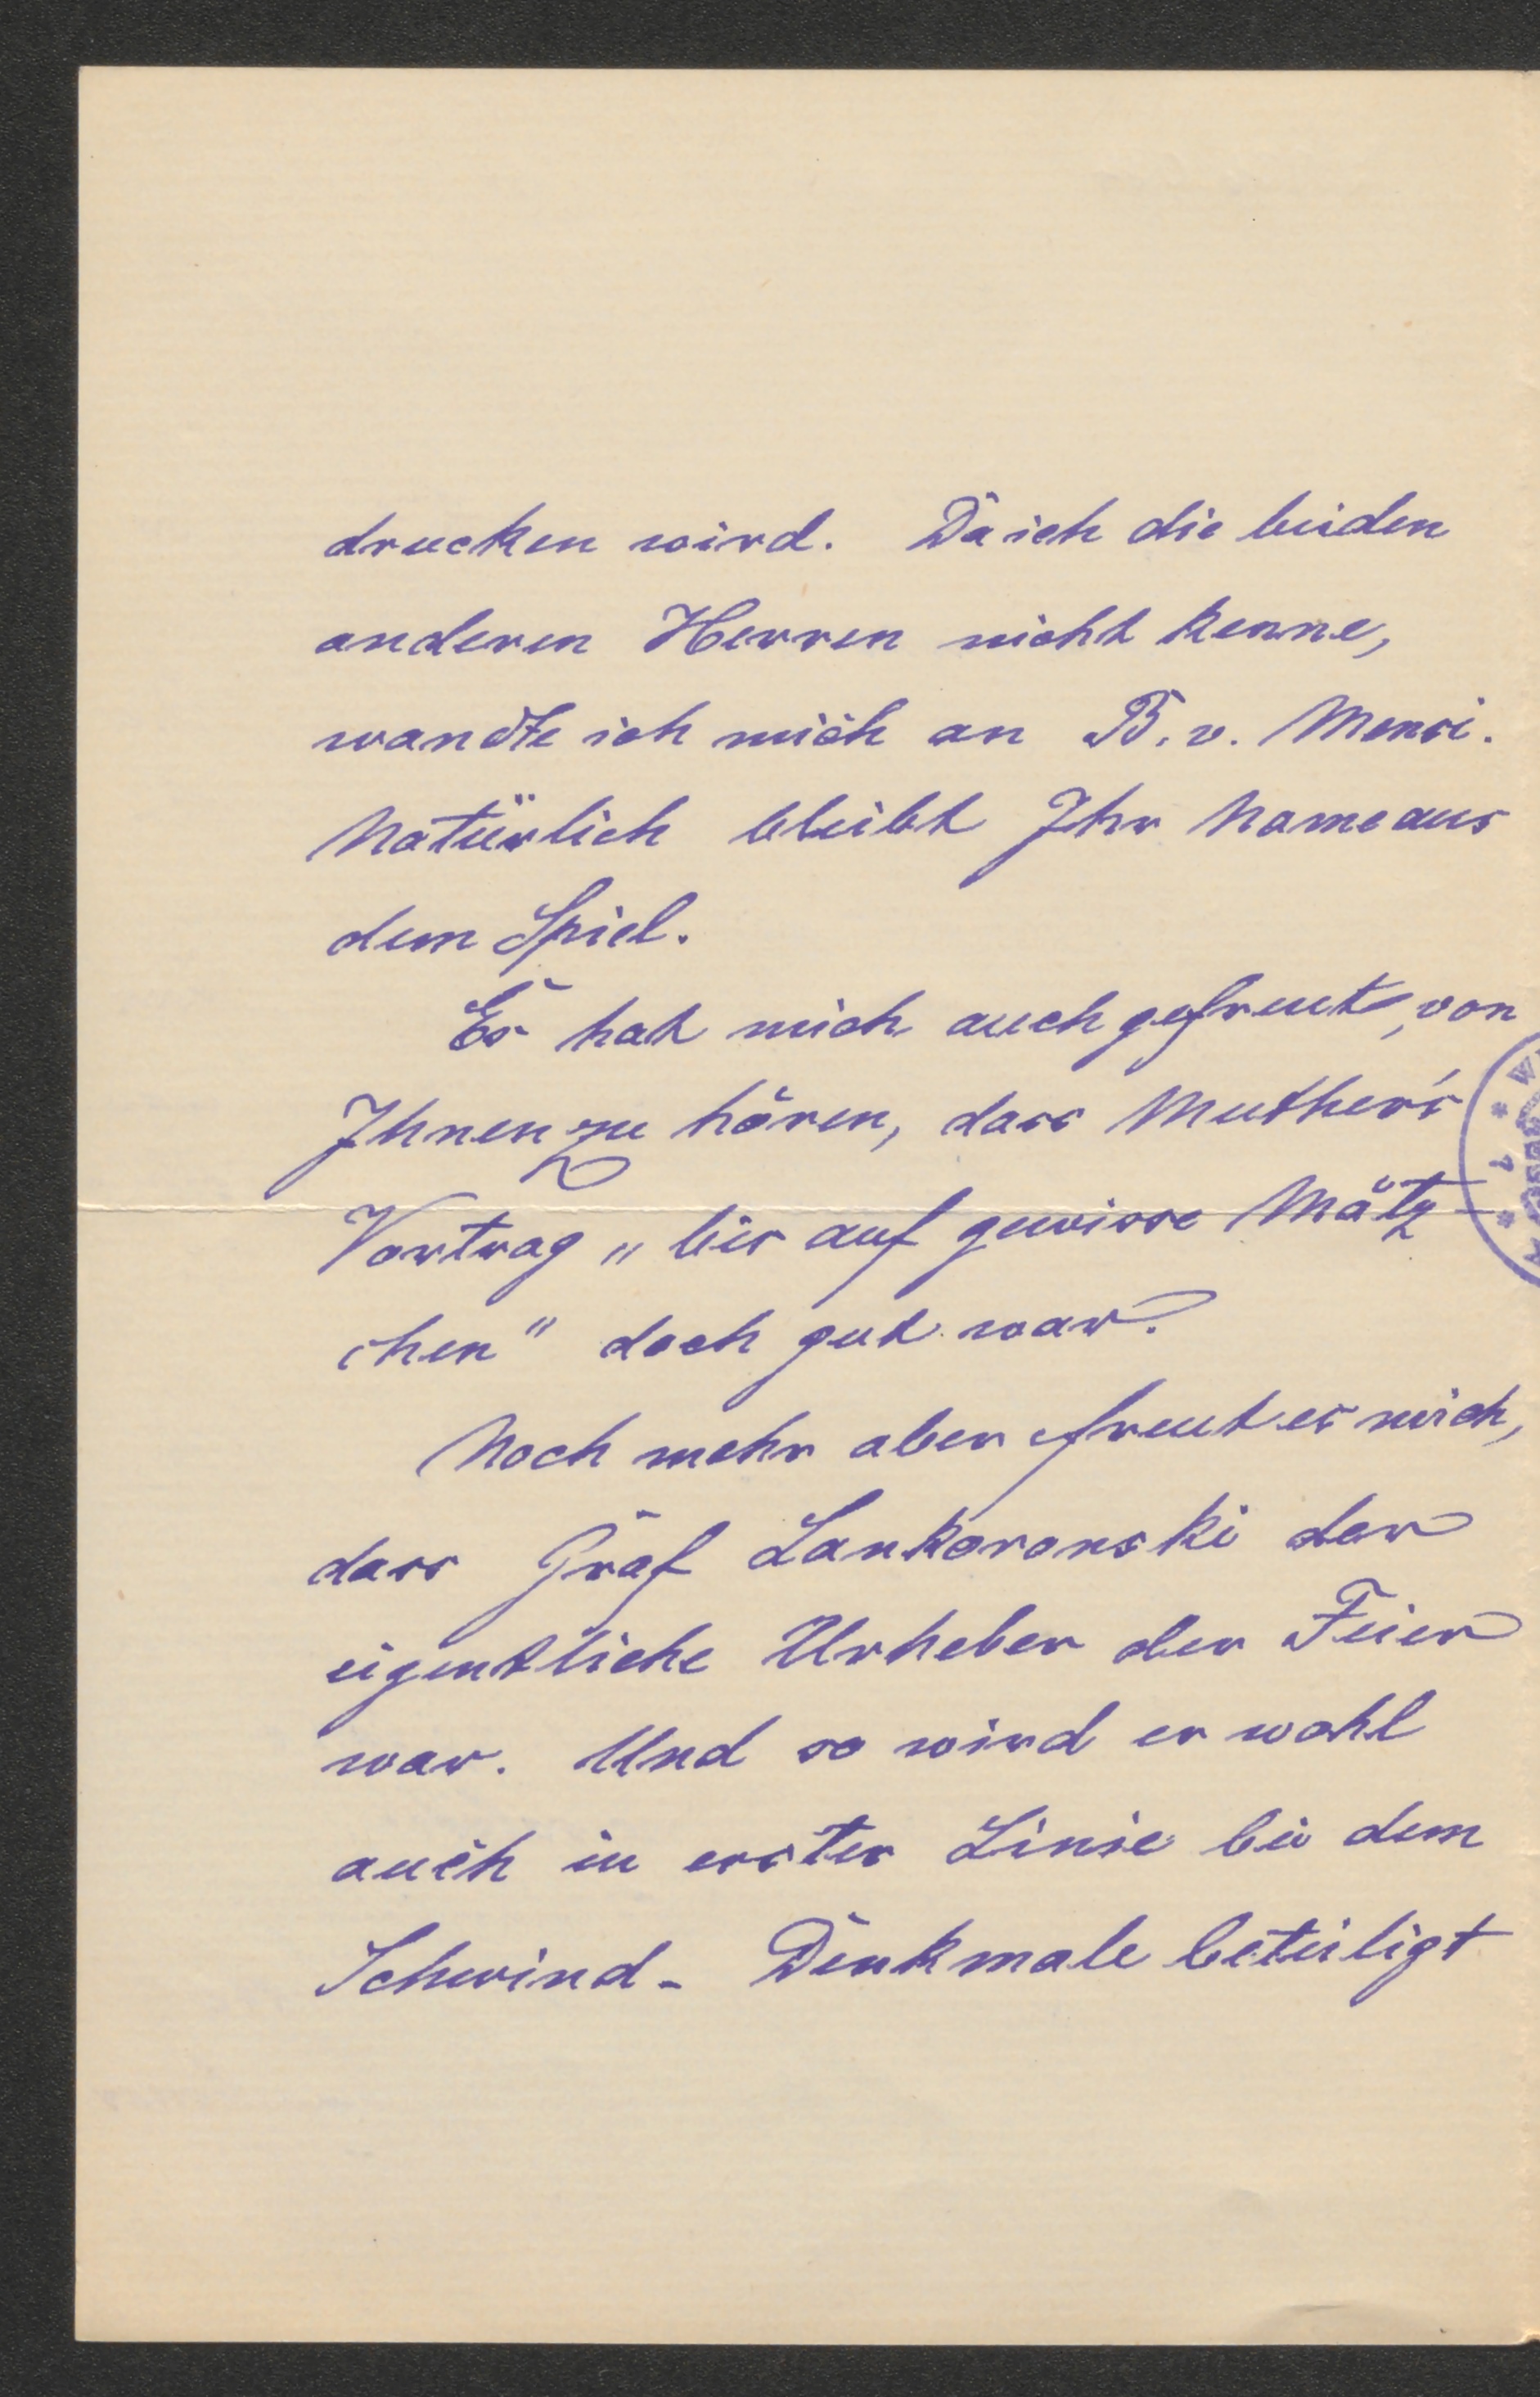 drucken wird. Da ich die beiden
anderen Herren nicht kenne,
wandte ich mich an B. v. Mensi.
Natürlich bleibt Ihr Name aus
dem Spiel.
Es hat mich auch gefreut, von
Ihnen zu hören, dass Muther's
Vortrag „bis auf gewisse Mätz-
chen" doch gut war.
Noch mehr aber freut es mich,
dass Graf Lankoronski der
eigentliche Urheber der Feier
war. Und so wird er wohl
auch in erster Linie bei dem
Schwind- Denkmale beteiligt